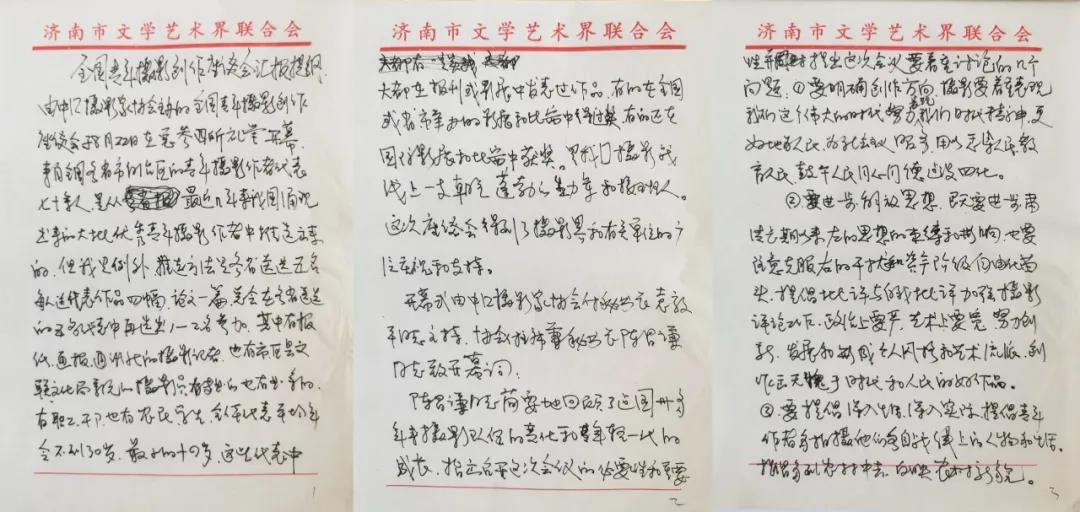 济南市文学艺术界联合会
全国青年摄影创作座谈会汇报提纲
由中国摄影家协会主办的全国青年摄影创作
座谈会于8月22日在总参四所礼堂开幕,
来自全国各省市自治区的青年摄影作者代表
七十余人,是从最近几年来我国涌现
出来的大批优秀青年摄影作者中推选出来
的,但我是例外,推选方法是各省选送五名
每人送代表作品四幅,论文一篇,总会在各省选送
的五名代表中再选出一一二名参加。其中有报
纸、画报、通讯社的摄影记者,也有市区县文
联文化局系统的摄影员,有专业的也有业余的,
有职工、干部,也有农民、学生,代表平均年
令不到30岁,最小的十四岁,这些代表中
1
济南市文学艺术界联合会
大部在报刊或影展中发表过作品,有的在全国
或省市举办的影展和比赛中获过奖,有的还在
国际影展和比赛中获奖,是我国摄影战
线上一支朝气蓬勃的力量和接班人。
这次座谈会得到了摄影界和有关单位的广
泛重视和支持。
开幕式由中国摄影家协会付秘书长袁毅
平同志主持,协会付主席兼秘书长陈昌谦
同志致开幕词:
陈昌谦同志简要地回顾了建国卅多
年来摄影队伍的变化和青年一代的
成长,指出召开这次会议的必要性和重要
2
济南市文学艺术界联合会
性并提出这次会议要着重讨论的几个
问题:①要明确创作方向,摄影要着重表现
我们这个伟大的时代,努力表现我们的时代精神,更
好地为人民、为社会主义服务,用以教
育人民,鼓午人民同心同德建设四化。
②要进一步解放思想,既要进一步肃
清长期以来左的思想的束缚和影响,也要
注意克服右的干扰和资产阶级自由化苗
头,提倡批评与自我批评,加强摄影
评论工作,政治上要严,艺术上要宽,努力创
新,发展和形成个人风格和艺术流派,创
作出无愧于时代和人民的好作品。
③要提倡深入生活,深入实际,提倡青年
作者多拍摄他们各自战线上的人物和生活。
提倡多到农村中去,反映农村新貌。
3